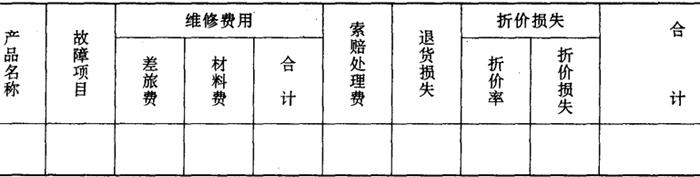 产品名称
故障项目
维修费用
差旅费
材料费
合计
索赔处理费
退货损失
折价损失
折价率
折价损失
合计